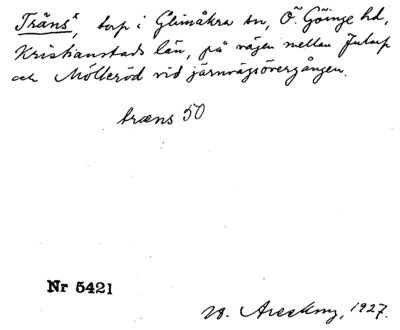 Träns x, torp i Glimåkra sn, Ö Göinge hd,
Kristianstads län, på vägen mellan Jularp
och Mölleröd vid järnvägsövergången.
træns 50
Nr 5421
1927.